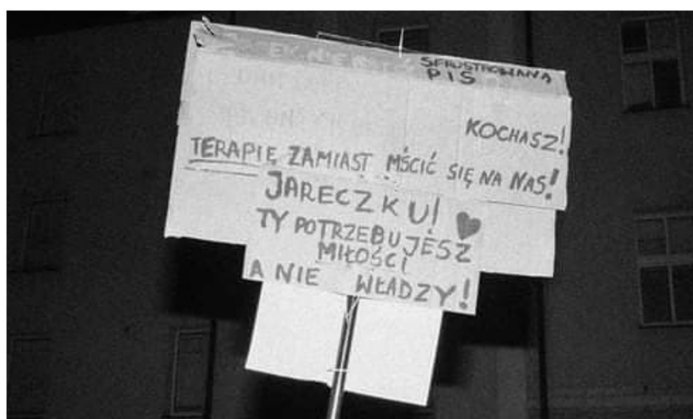 SFRUSTROWANA
PIS
KOCHASZ!
TERAPIĘ ZAMIAST MŚCIĆ SIĘ NA NAS!
JARECZKU!
TY POTRZEBUJESZ
MIŁOŚCI
A NIE WŁADZY!